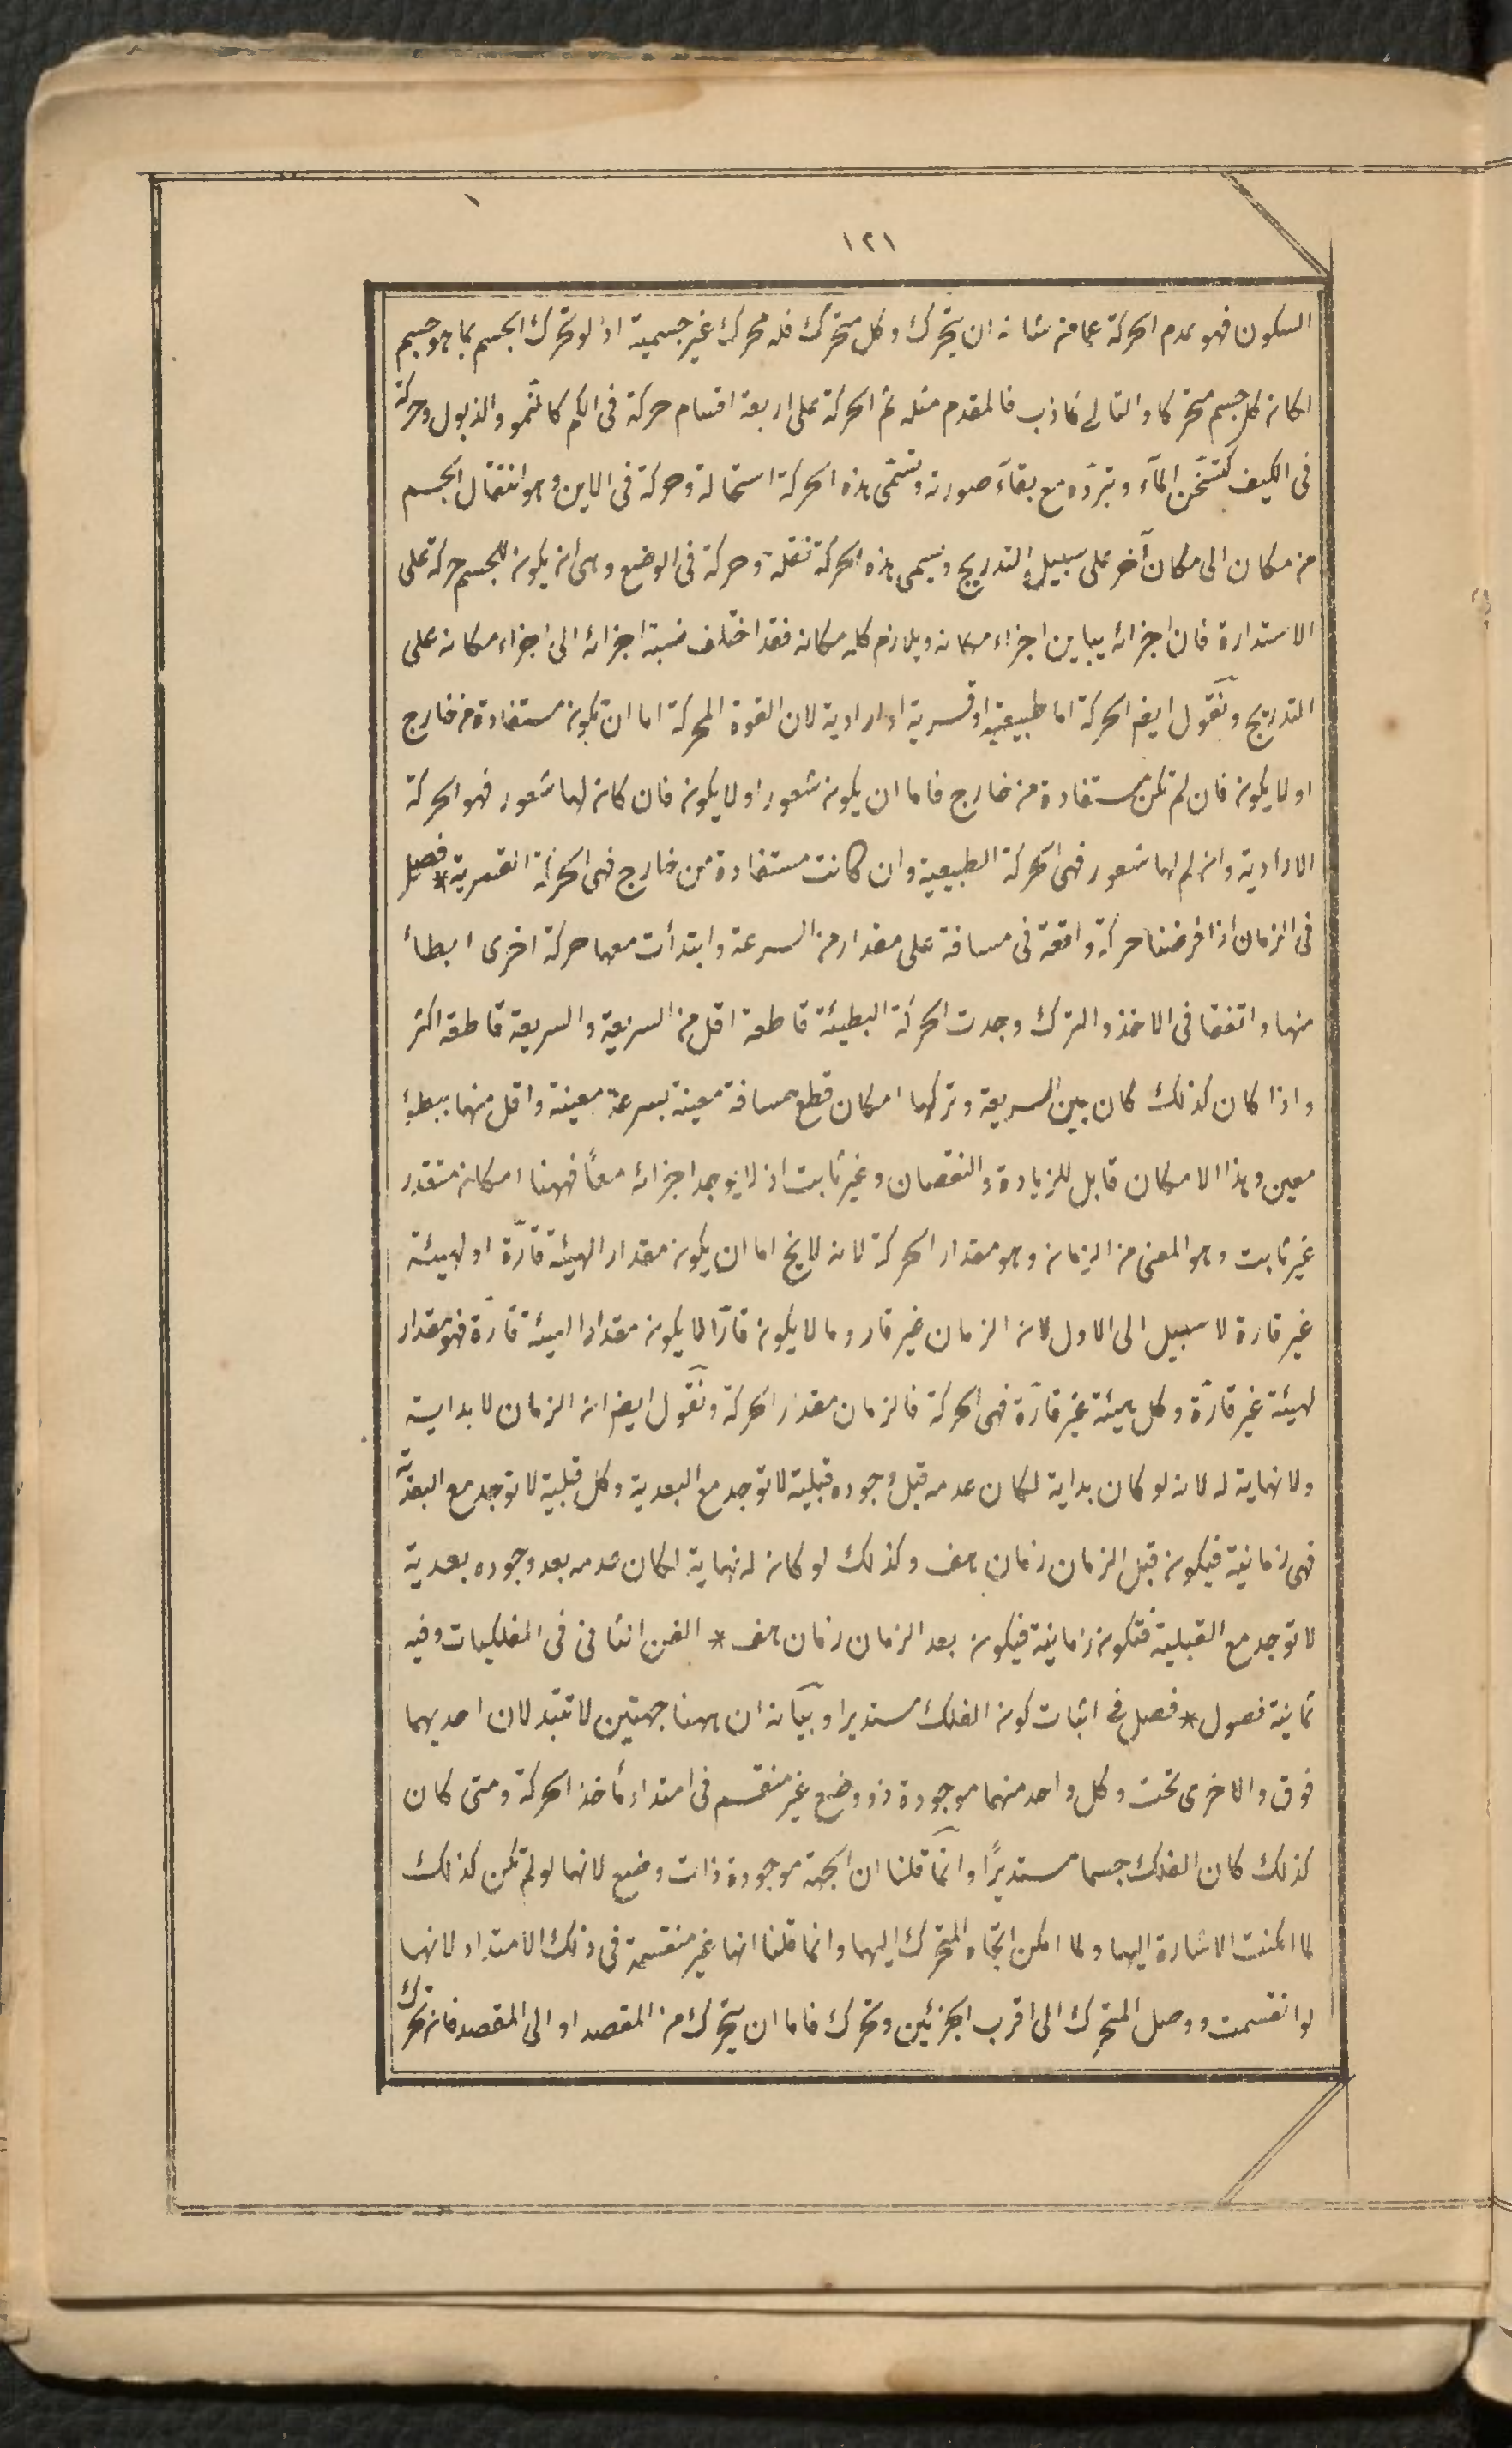 ١٢١
السكون فهو عدم الحركة عما من شانه ان يتحرك وكل متحرك فله محرك غير جسمية اذ لو تحرك الجسم بما هو جسم
لكان كل جسم متحركا والتالى كاذب فالمقدم مثله ثم الحركة على اربعة اقسام حركة فى الكم كالنّمو والذبول وحركة
فى الكيف كتسخّن المآء وتبرّده مع بقآء صورته وتسمّى هذه الحركة استحالة وحركة فى الاين وهو انتقال الجسم
من مكان الى مكان آخر على سبيل التدريج ويسمى هذه الحركة نقلة وحركة فى الوضع وهى ان يكون للجسم حركة على
الاستدارة فان اجزائه يباين اجزاء مكانه ويلازم كله مكانه فقد اختلف نسبة اجزائه الى اجزاء مكانه على
التدريج ونقول ايضا الحركة اما طبيعية او قسرية او ارادية لان القوة المحركة اما ان يكون مستفادة من خارج
او لا يكون فان لم تكن مستفادة من خارج فاما ان يكون شعور او لا يكون فان كان لها شعور فهو الحركة
الارادية وان لم لها شعور فهى الحركة الطبيعية وان كانت مستفادة من خارج فهى الحركة القسرية * فصل
فى الزمان اذا فرضنا حركة واقعة فى مسافة على مقدار من السرعة وابتدأت معها حركة اخرى ابطأ
منها واتفقا فى الاخذ والترك وجدت الحركة البطيئة قاطعة اقل من السريعة والسريعة قاطعة اكثر
واذا كان كذلك كان بين السريعة وتركها امكان قطع مسافة معينة بسرعة معينة واقل منها ببطؤ
معين وهذا الامكان قابل للزيادة والنقصان وغير ثابت اذ لا يوجد اجزائه معاً فههنا امكان متقدر
غير ثابت وهو المعنى من الزمان وهو مقدار الحركة لانه لا يخ اما ان يكون مقدار الهيئة قارّة او لهيئة
غير قارة لا سبيل الى الاول لان الزمان غير قار وما لا يكون قارّا لا يكون مقدارا الهيئة قارّة فهو مقدار
لهيئة غير قارّة وكل هيئة غير قارّة فهى الحركة فالزمان مقدار الحركة ونقول ايضا ان الزمان لا بداية
ولا نهاية له لانه لو كان بداية لكان عدمه قبل وجوده قبلية لا توجد مع البعدية وكل قبلية لا توجد مع البعدية
فهى زمانية فيكون قبل الزمان زمان هف وكذلك لو كان له نهاية لكان عدمه بعد وجوده بعدية
لا توجد مع القبلية فتكون زمانية فيكون بعد الزمان زمان هف * الفن الثانى فى الفلكيات وفيه
ثمانية فصول * فصل فى اثبات كون الفلك مستديرا وبيآنه ان ههنا جهتين لا تتبدلان احديهما
فوق والاخرى تحت وكل واحد منهما موجودة ذو وضع غير منقسم فى امتداد مأخذ الحركة ومتى كان
كذلك كان الفلك جسما مستديرًا وانّما قلنا ان الجهة موجودة ذات وضع لانها لو لم تكن كذلك
لما امكنت الاشارة اليها ولما امكن اتجاه المتحرك اليها وانما قلنا انها غير منقسمة فى ذلك الامتداد لانها
لو انقسمت ووصل المتحرك الى اقرب الجزئين وتحرك فاما ان يتحرك من المقصد او الى المقصد فان تحرك